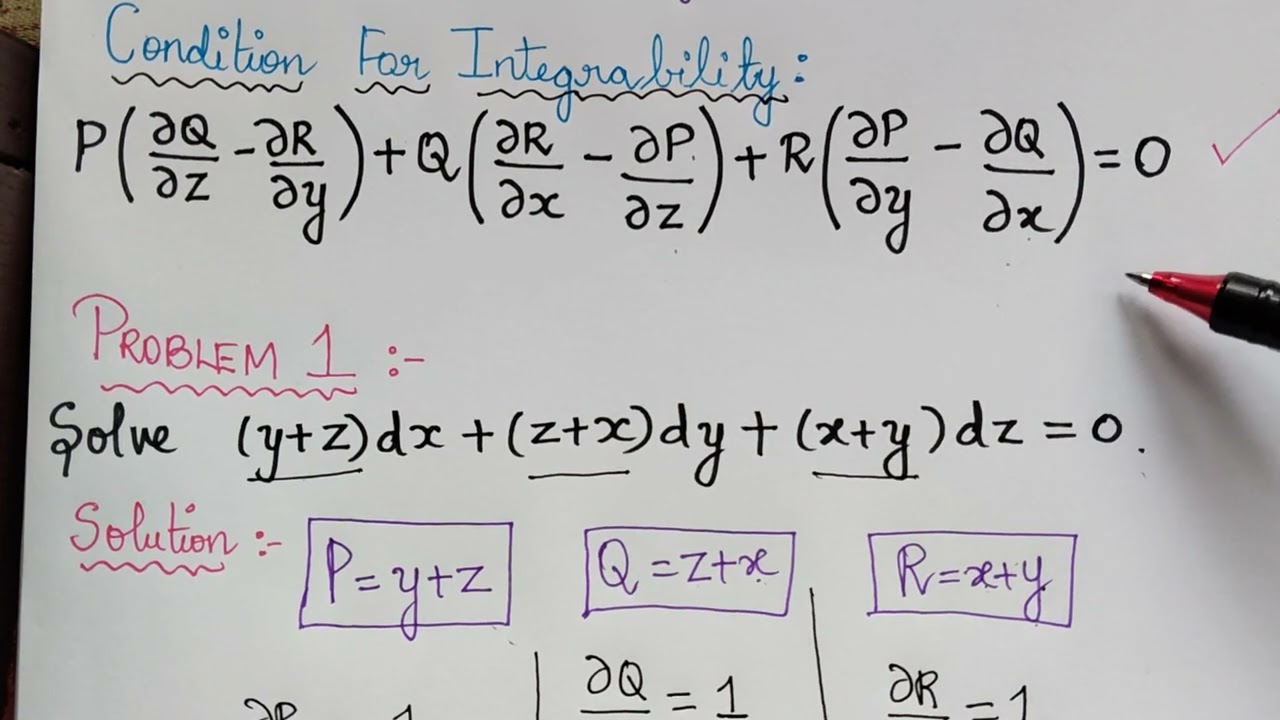 Condition For Integrability:
P(∂Q/∂z - ∂R/∂y) + Q(∂R/∂x - ∂P/∂z) + R(∂P/∂y - ∂Q/∂x) = 0 ✓
PROBLEM 1 :-
Solve (y+z)dx + (z+x)dy + (x+y)dz = 0.
Solution :- P=y+z Q=z+x R=x+y
∂Q = 1 ∂R = 1